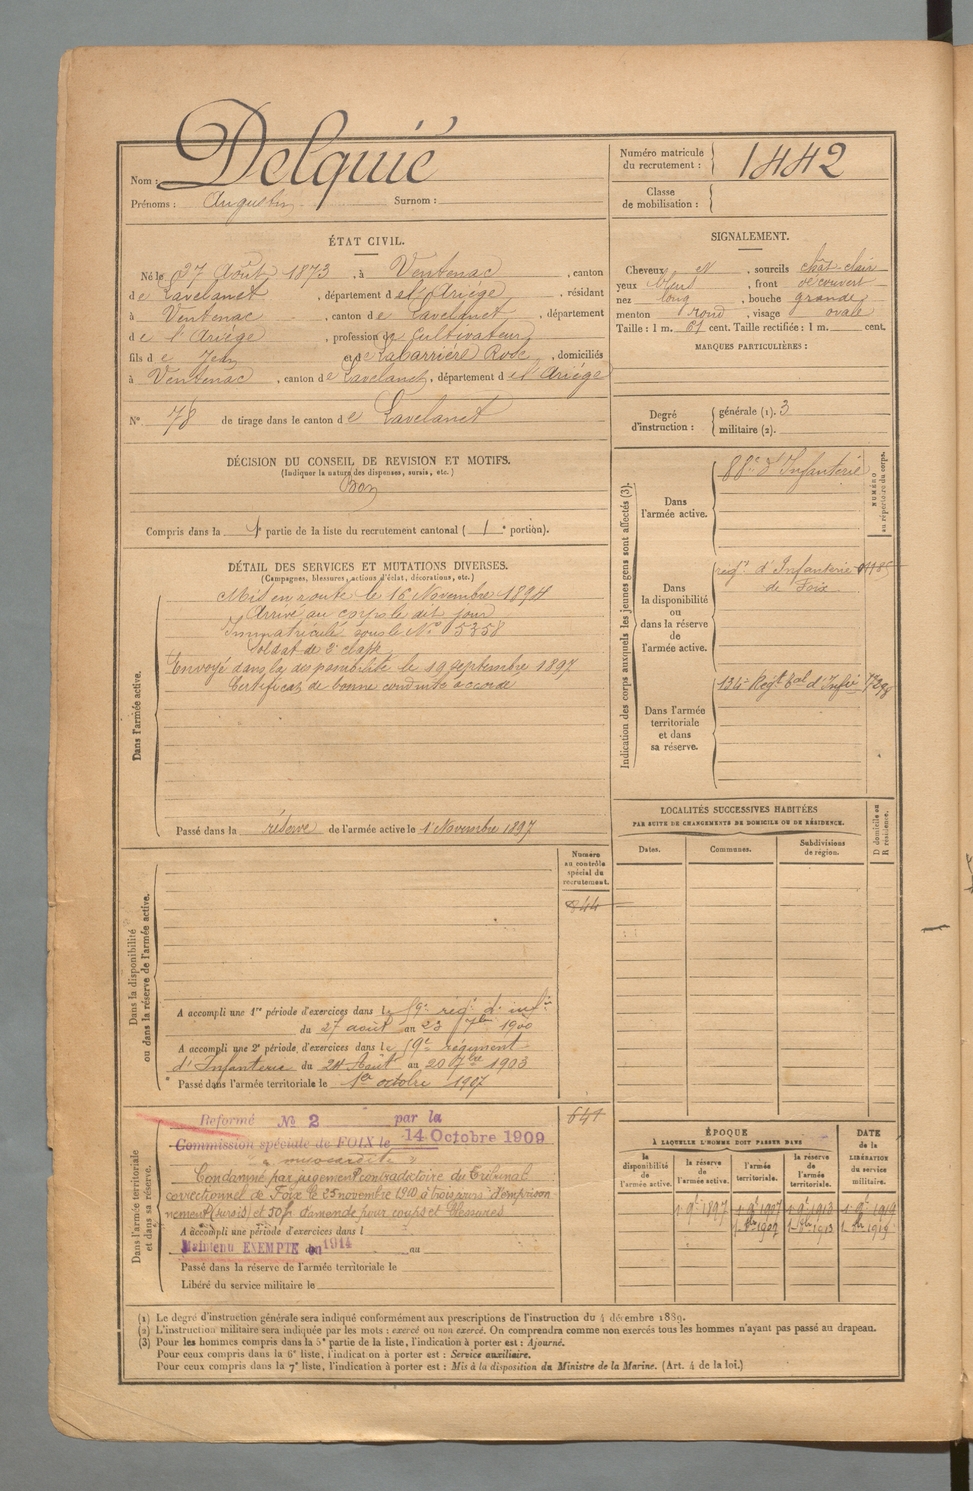 Nom : Delquié
Prénoms : Augustin Surnom :
Numéro matricule
du recrutement : 1442
Classe
de mobilisation :
ÉTAT CIVIL.
Né le 27 Août 1873, à Ventenac, canton
de Lavelanet, département de l'Ariége, résidant
à Ventenac, canton de Lavelanet, département
de l'Ariége, profession de Cultivateur
fils de Jean et de Labarriére Rose, domiciliés
à Ventenac, canton de Lavelanet, département de l'Ariége
N° 78 de tirage dans le canton de Lavelanet
SIGNALEMENT.
Cheveux et, sourcils chât-clair
yeux, front découvert
nez long, bouche grande
menton rond, visage ovale
Taille : 1 m. 61 cent. Taille rectifiée : 1 m. cent.
MARQUES PARTICULIÈRES :
Degré
d'instruction :
générale (1). 3
militaire (2).
DÉCISION DU CONSEIL DE REVISION ET MOTIFS.
(Indiquer la nature des dispenses, sursis, etc.)
Bon
Compris dans la 1e partie de la liste du recrutement cantonal ( 1e portion).
DÉTAIL DES SERVICES ET MUTATIONS DIVERSES.
(Campagnes, blessures, actions d'éclat, décorations, etc.)
Dans l'armée active.
Mis en route le 16 Novembre 1894
Arrivé au corps le dit jour
Immatriculé sous le N° 5358
Soldat de 2e classe
Envoyé dans la disponibilité le 19 septembre 1897
Certificat de bonne conduite accordé
Passé dans la réserve de l'armée active le 1 Novembre 1897
Indication des corps auxquels les jeunes gens sont affectés (3).
NUMÉRO
au répertoire du corps.
Dans
l'armée active.
88e d'Infanterie
Dans
la disponibilité
ou
dans la réserve
de
l'armée active.
régt d'Infanterie
de Foix
Dans l'armée
territoriale
et dans
sa réserve.
134e Régt tal d'Infie
LOCALITÉS SUCCESSIVES HABITÉES
PAR SUITE DE CHANGEMENTS DE DOMICILE OU DE RÉSIDENCE.
Dates.
Communes.
Subdivisions
de région.
D domicile ou
R résidence.
Dans la disponibilité
ou dans la réserve de l'armée active.
Numéro
au contrôle
spécial du
recrutement.
844
A accompli une 1re période d'exercices dans le 59e régt d'infie
du 27 août au 23 7bre 1900
A accompli une 2e période d'exercices dans le 59e régiment
d'Infanterie du 24 Août au 20 7bre 1903
Passé dans l'armée territoriale le 1er octobre 1907
Dans l'armée territoriale
et dans sa réserve.
641
Reformé N° 2 par la
Commission spéciale de FOIX le 14 Octobre 1909
Condamné par jugement contradictoire du Tribunal
correctionnel de Foix le 25 novembre 1910 à trois jours d'emprison
nement (sursis) et 50 f. d'amende pour coups et blessures
A accompli une période d'exercices dans l
Maintenu EXEMPTÉ en 1914 au
Passé dans la réserve de l'armée territoriale le
Libéré du service militaire le
ÉPOQUE
À LAQUELLE L'HOMME DOIT PASSER DANS
DATE
de la
LIBÉRATION
du service
militaire.
la
disponibilité
de
l'armée active.
la réserve
de
l'armée active.
l'armée
territoriale.
la réserve
de
l'armée
territoriale.
1 9bre 1897 1 9bre 1907 1 9bre 1913 1 9bre 1919
1 8bre 1907 1 8bre 1913 1 8bre 1919
(1) Le degré d'instruction générale sera indiqué conformément aux prescriptions de l'instruction du 4 décembre 1889.
(2) L'instruction militaire sera indiquée par les mots : exercé ou non exercé. On comprendra comme non exercés tous les hommes n'ayant pas passé au drapeau.
(3) Pour les hommes compris dans la 5e partie de la liste, l'indication à porter est : Ajourné.
Pour ceux compris dans la 6e liste, l'indication à porter est : Service auxiliaire.
Pour ceux compris dans la 7e liste, l'indication à porter est : Mis à la disposition du Ministre de la Marine. (Art. 4 de la loi.)